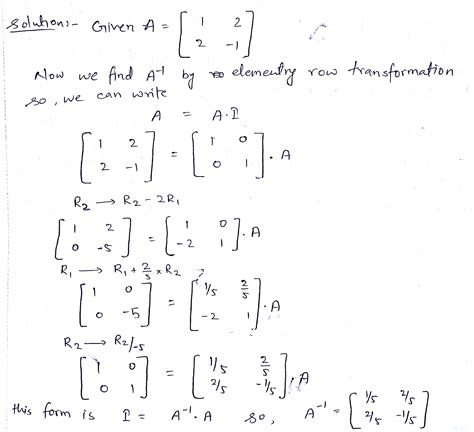 Solution:- Given A = [ 1 2 ; 2 -1 ]
Now we find A⁻¹ by elementry row transformation
so, we can write
A = A.I
[ 1 2 ; 2 -1 ] = [ 1 0 ; 0 1 ] . A
R₂ → R₂ - 2R₁
[ 1 2 ; 0 -5 ] = [ 1 0 ; -2 1 ] . A
R₁ → R₁ + 2/5 × R₂
[ 1 0 ; 0 -5 ] = [ 1/5 2/5 ; -2 1 ] . A
R₂ → R₂/-5
[ 1 0 ; 0 1 ] = [ 1/5 2/5 ; 2/5 -1/5 ] . A
this form is I = A⁻¹ . A so, A⁻¹ = [ 1/5 2/5 ; 2/5 -1/5 ]